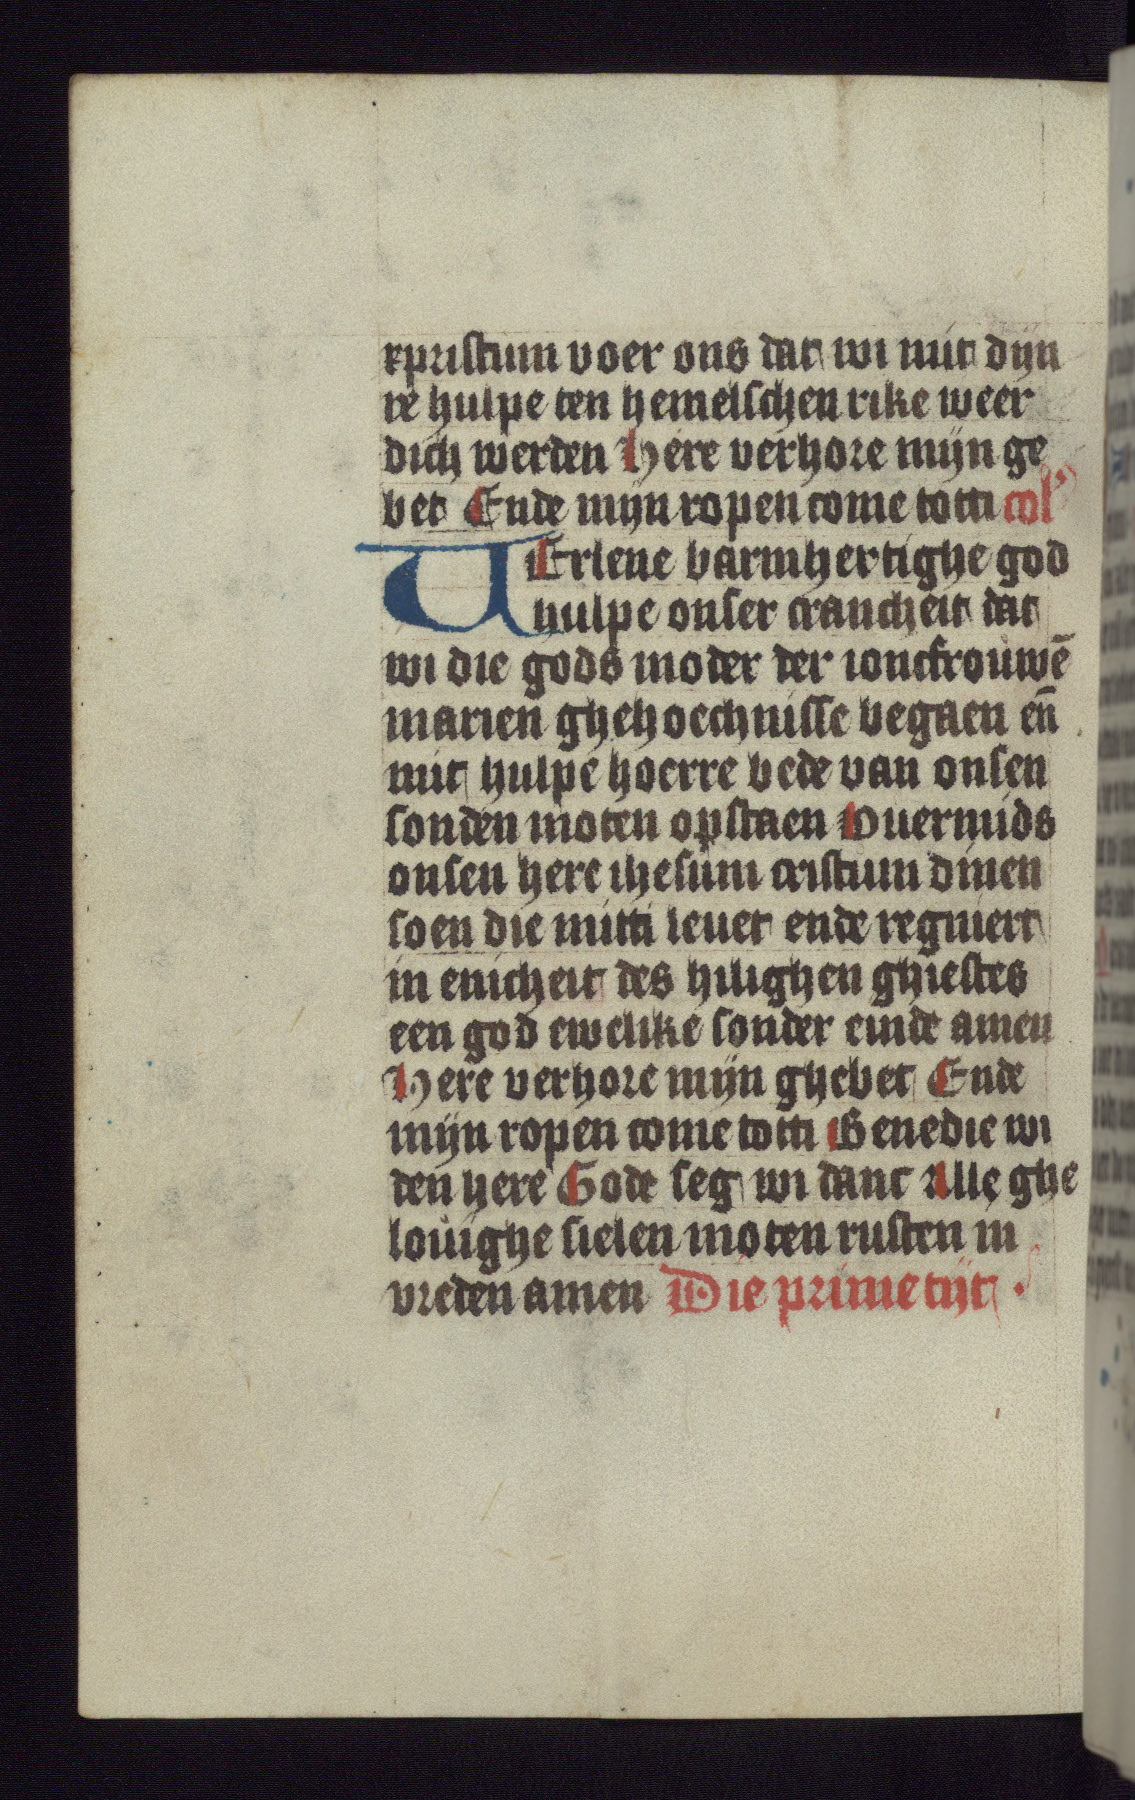 xpristum voer ons dat wi mit dijn
re hulpe ten hemelschen rike weer
dich werden Here verhore mijn ge
bet Ende mijn ropen come totti col'
VErlene barmhertighe god
hulpe onser crancheit dat
wi die gods moder der ioncfrouwē
marien ghehoechnisse begaen eñ
mit hulpe hoerre bede van onsen
sonden moten opstaen Ouermids
onsen here ihesum cristum dinen
soen die mitti leuet ende regniert
in enicheit des hilighen ghiestes
een god ewelike sonder einde amen
Here verhore mijn ghebet Ende
mijn ropen come totti Benedie wi
den here Gode seg wi danc Alle ghe
louighe sielen moten rusten in
vreden amen Die prime tijt .